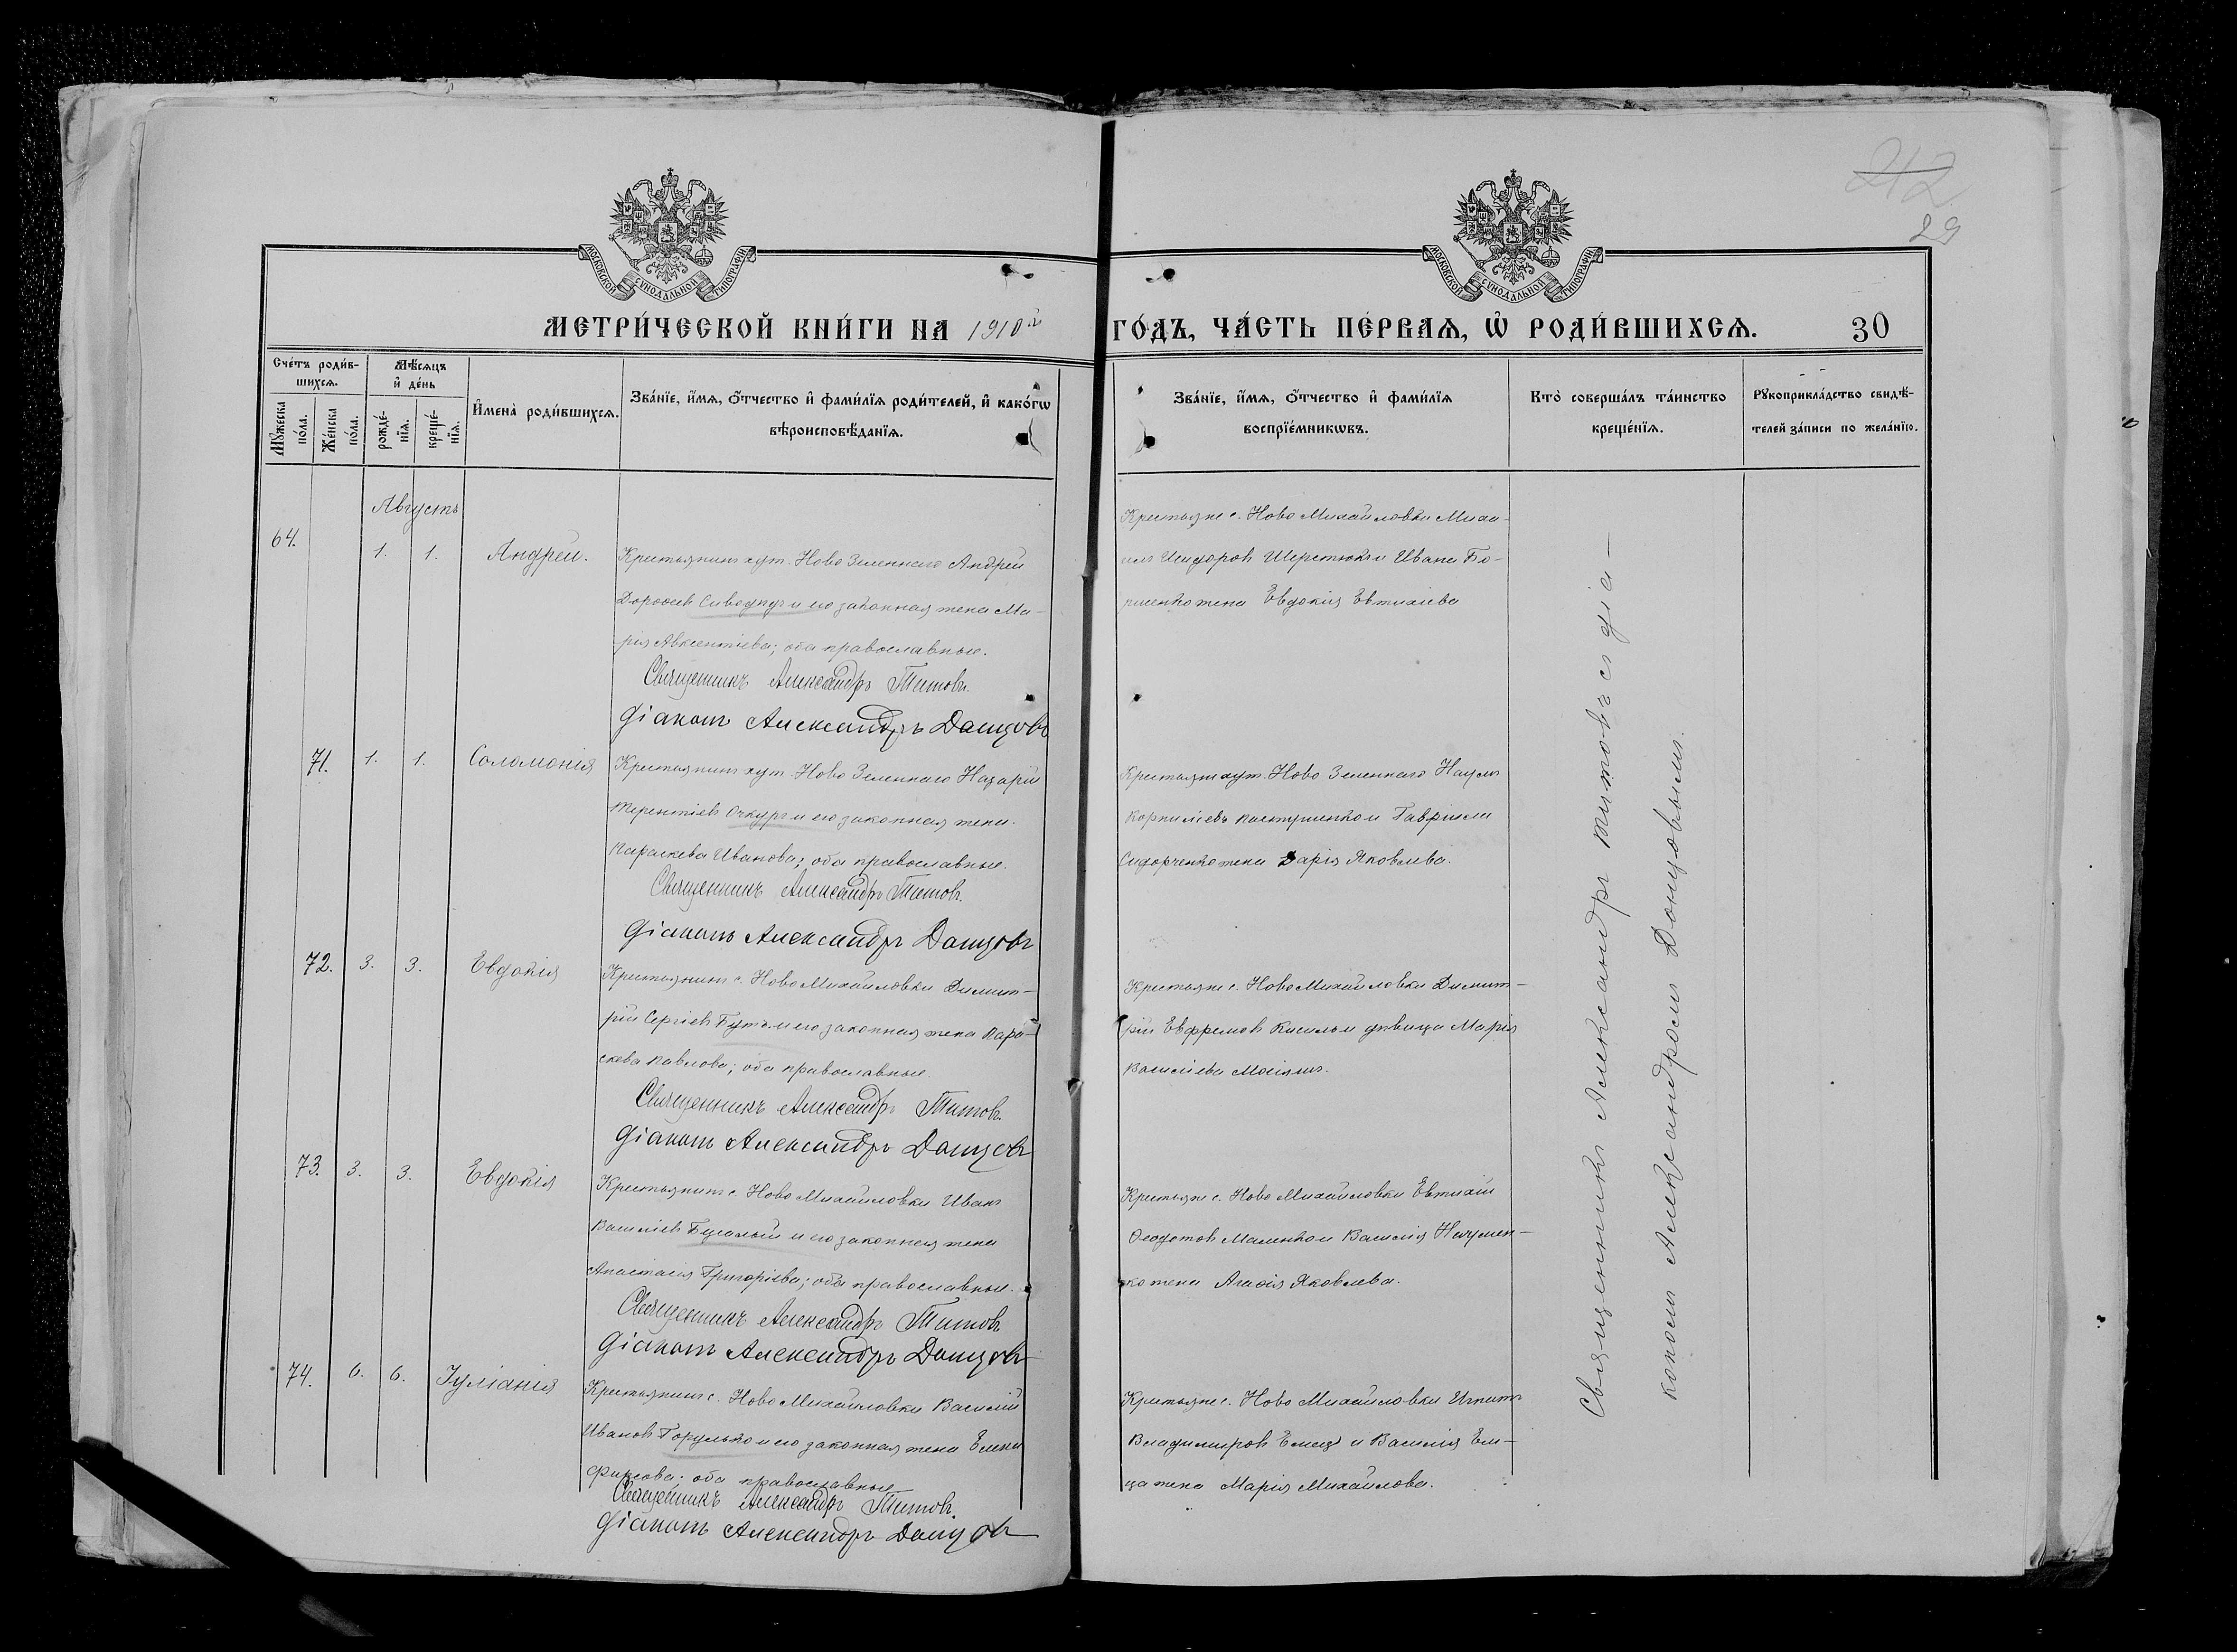 212
29
МОСКОВСКОЙ СѴНОДАЛЬНОЙ ТИПОГРАФІИ
МОСКОВСКОЙ СѴНОДАЛЬНОЙ ТИПОГРАФІИ
МЕТРИ́ЧЕСКОЙ КНИ́ГИ НА 1910й ГО́ДЪ, ЧА́СТЬ ПЕ́РВАѦ, Ѽ РОДИ́ВШИХСѦ. 30
Сче́тъ роди́в-
шихсѧ.
Мꙋжеска по́ла.
Же́нска по́ла.
Мѣ́сѧцъ
и҆ де́нь
рожде́-
нїѧ.
креще́-
нїѧ.
И҆мена̀ роди́вшихсѧ.
Зва́нїе, и҆́мѧ, ѻ҆́тчество и҆ фами́лїѧ роди́телей, и҆ како́гѡ
вѣроисповѣ́данїѧ.
Зва́нїе, и҆́мѧ, ѻ҆́тчество и҆ фами́лїѧ
воспрїе́мникѡвъ.
Кто̀ соверша́лъ та́инство
креще́нїѧ.
Рꙋкоприкла́дство свидѣ́-
телей за́писи по жела́нїю.
Августъ
64. 1. 1. Андрей.
Крестьянинъ хут. Ново Зеленнаго Андрей
Дорофеевъ и его законная жена Ма-
рія Авксентіева; оба православные.
Священникъ Александръ Титовъ.
Діаконъ Александръ Донцовъ
Крестьяне с. Ново Михайловки Миха-
илъ Исидоровъ Шерстюкъ и Ивана Бо-
жена Евдокія Евтихіева
71. 1. 1. Соломонія
Крестьянинъ хут. Ново Зеленнаго Назарій
Терентіевъ Очкуръ и его законная жена
Параскева Иванова; оба православные.
Священникъ Александръ Титовъ.
Діаконъ Александръ Донцовъ
Крестьяне хут. Ново Зеленнаго Наумъ
Корниліевъ и Гавріила
Сидорченко жена Дарія Яковлева.
72. 3. 3. Евдокія
Крестьянинъ с. Ново Михайловки Димит-
рій Сергіевъ и его законная жена Пара-
скева Павлова; оба православные.
Священникъ Александръ Титовъ.
Діаконъ Александръ Донцовъ
Крестьяне с. Ново Михайловки Димит-
рій Евфремовъ Кисиль и дѣвица Марія
Василіева
73. 3. 3. Евдокія
Крестьянинъ с. Ново Михайловки Иванъ
Василіевъ и его законная жена
Анастасія Григоріева; оба православные.
Священникъ Александръ Титовъ
Діаконъ Александръ Донцовъ
Крестьяне с. Ново Михайловки Евтихій
Ѳеодотовъ и Василія Наумен-
ко жена Агафія Яковлева.
74. 6. 6. Іуліанія
Крестьянинъ с. Ново Михайловки Василій
Ивановъ и его законная жена Елена
Фирсова; оба православные
Священникъ Александръ Титовъ.
Діаконъ Александръ Донцовъ
Крестьяне с. Ново Михайловки
Владимировъ Емецъ и Василія Ем-
ца жена Марія Михайлова.
Священникъ Александръ Титовъ съ діа-
кономъ Александромъ Донцовымъ.